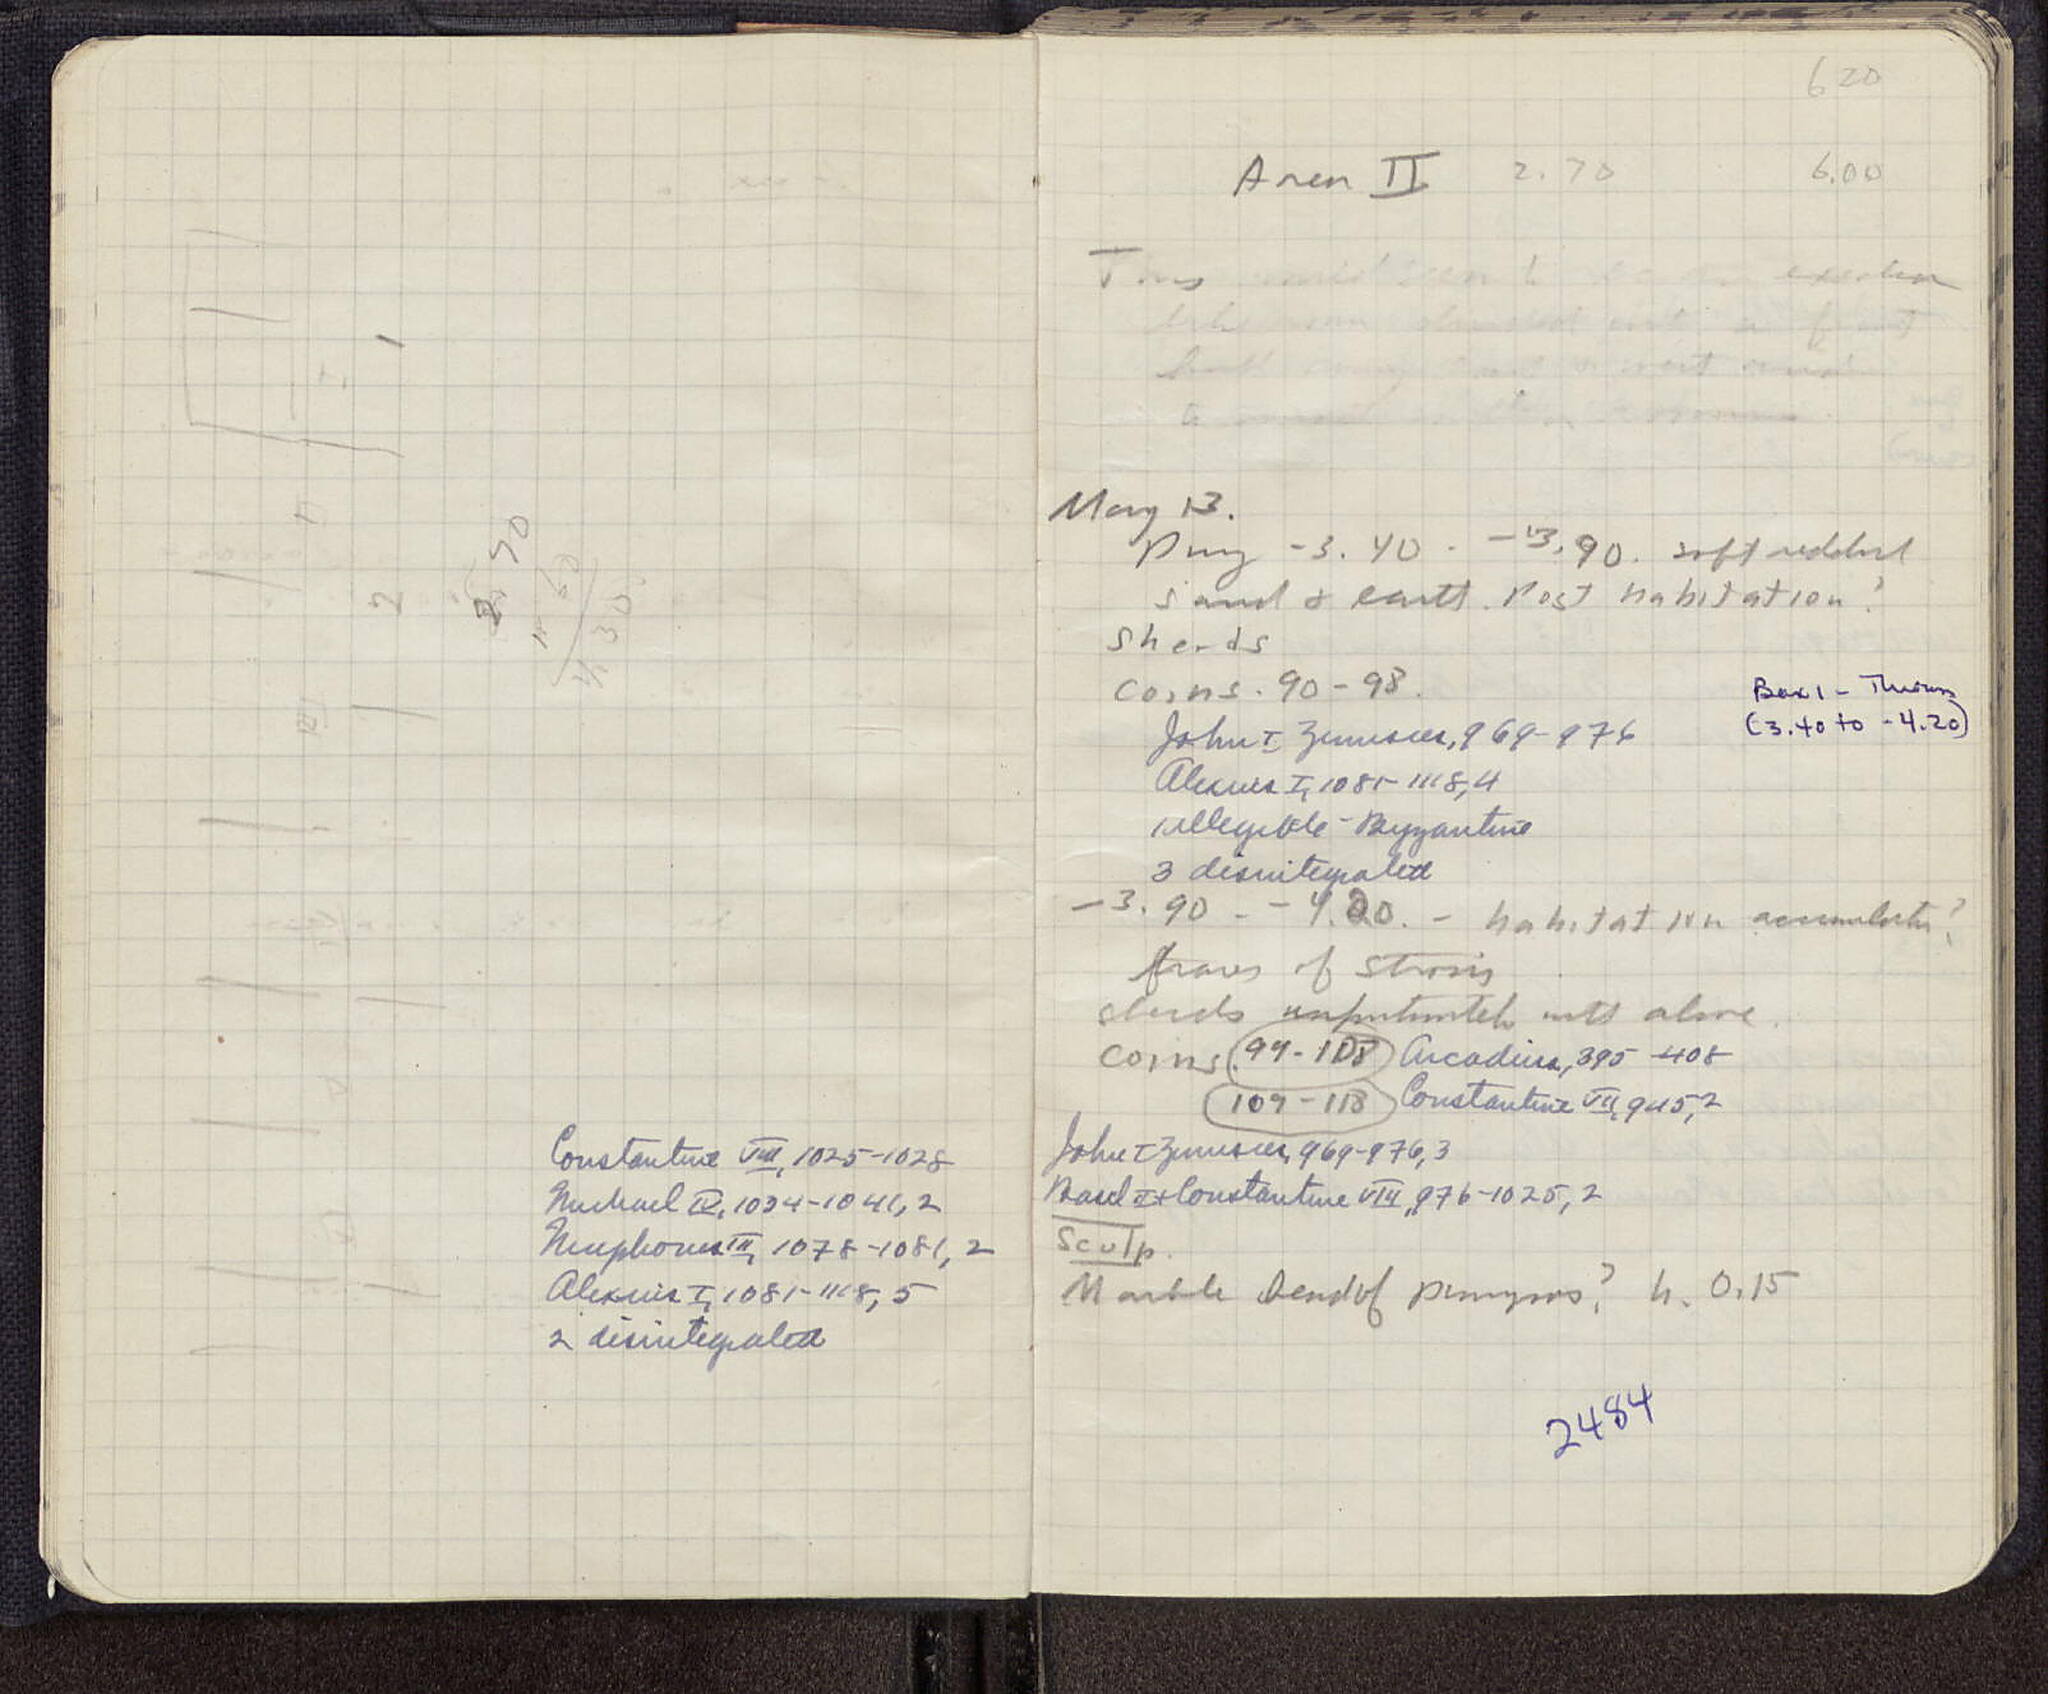 2.70
Constantine VIII, 1025-1028
Michael IV, 1034-1041, 2
Nicephorus III, 1078-1081, 2
Alexius I, 1081-1118, 5
2 disintegrated
620
Area II 2.70 6.00
This
May 13.
-3.40 - -3.90. soft reddish
sand & earth. Post habitation?
Sherds
Coins. 90-98.
Box 1 -
(3.40 to -4.20)
John I Zimisces, 969-976
Alexius I, 1081-1118, 4
1 illegible - Byzantine
3 disintegrated
-3.90 - -4.20. - habitation accumulation?
traces of strosis
sherds unfortunately with above.
Coins. 99-108 Arcadius, 395-408
109-118 Constantine VII, 945, 2
John I Zimisces, 969-976, 3
Basil II & Constantine VIII, 976-1025, 2
Sculp.
Marble head of h. 0.15
2484